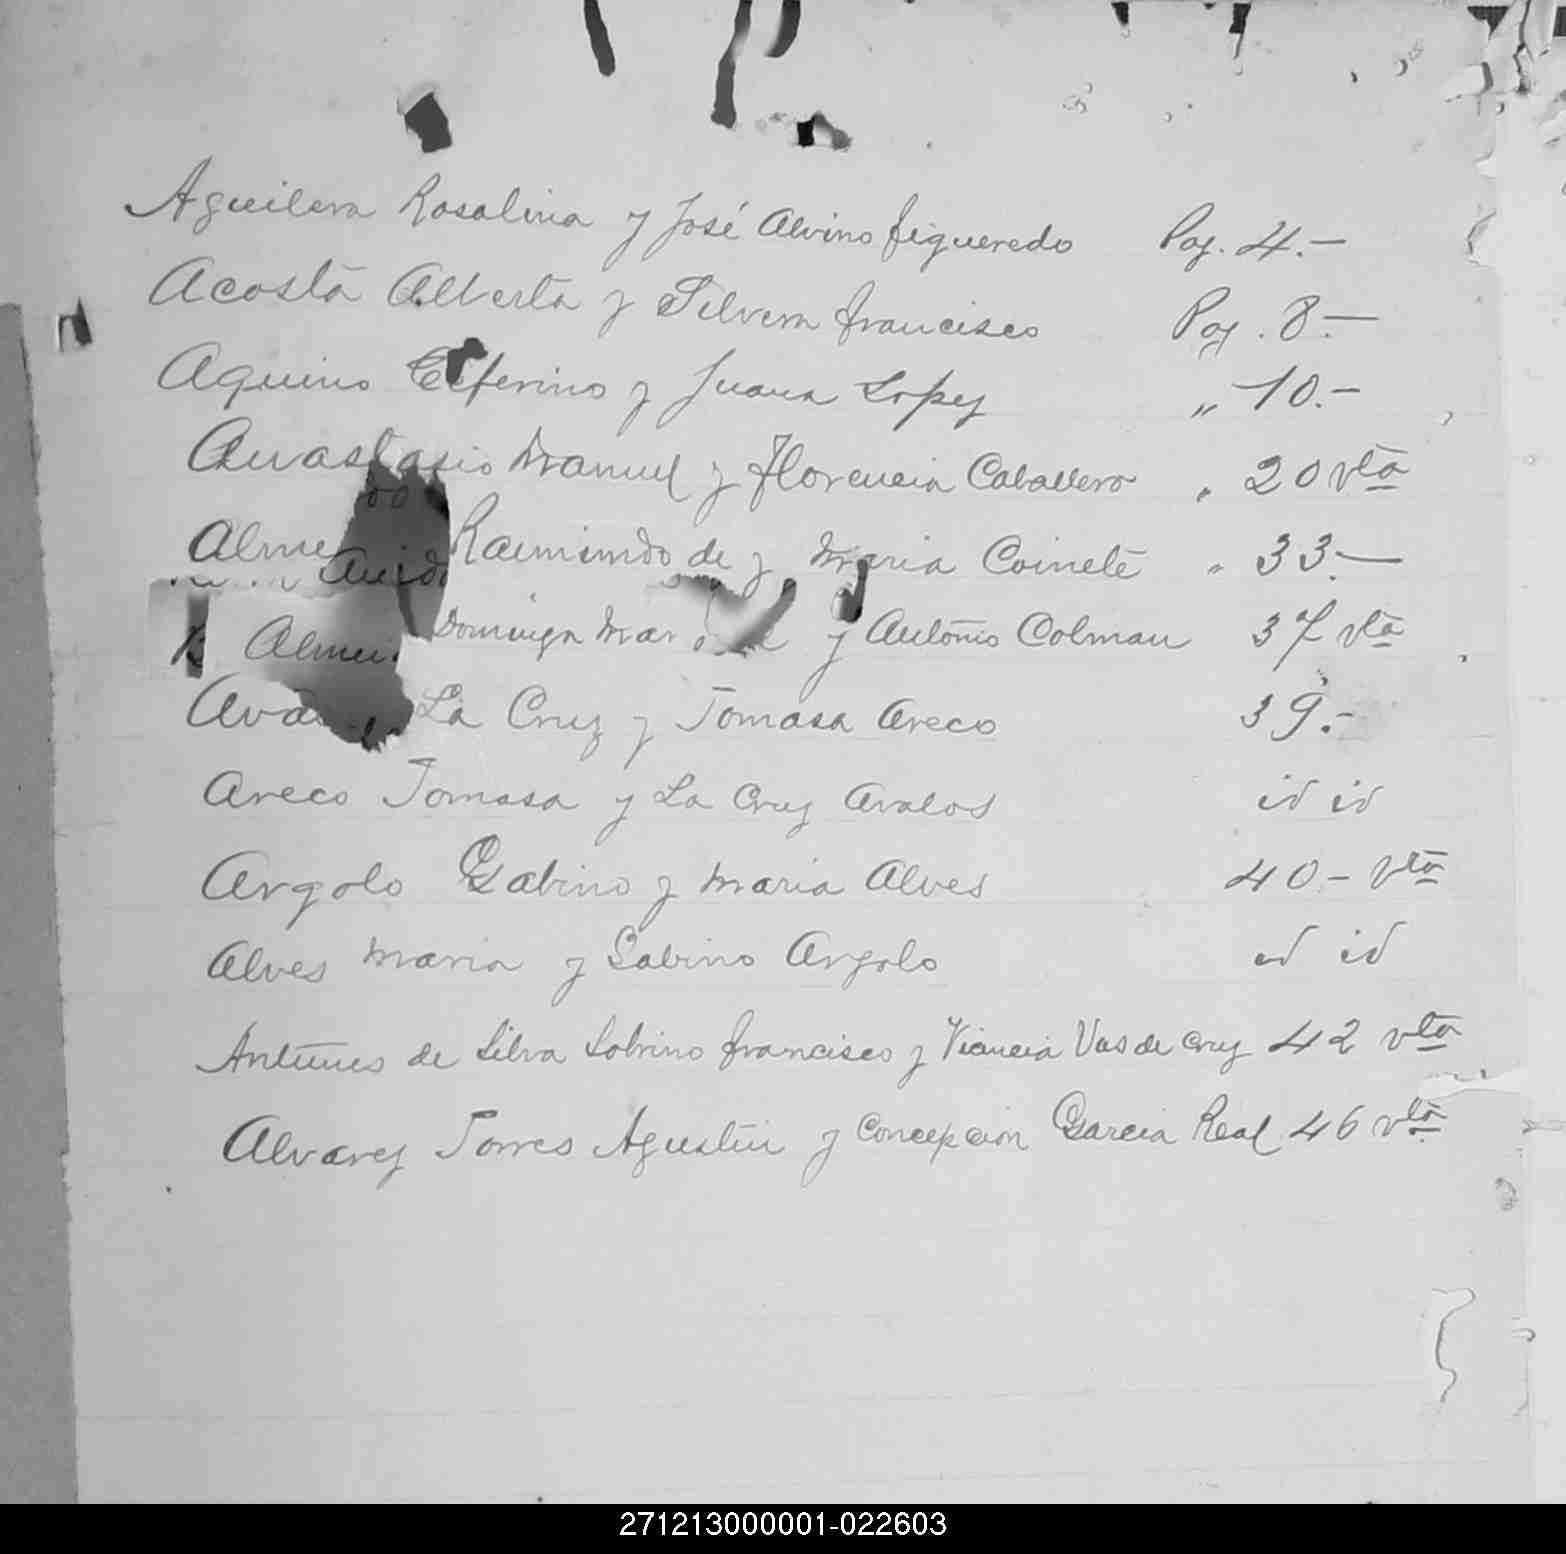 Aguilera Rosalina y José Alvino figueredo Pag. 4.-
Acosta Alberta y Silvera francisco Pag. 8.-
Aquino Ceferino y Juana Lopez " 10.-
Anastasio Manuel y Florencia Caballero " 20 vta
Alme Raimundo de y Maria Coinete " 33.-
Almei Dominga Mar y Antonio Colman 37 vta
Ava La Cruz y Tomasa Areco 39.-
Areco Tomasa y La Cruz Avalos id id
Argolo Gabino y Maria Alves 40- vta
Alves Maria y Gabino Argolo id id
Antunes de Silva Sobrino francisco y Viancia Vas de Cruz 42 vta
Alvarez Torres Agustin y Concepcion Garcia Real 46 vta
271213000001-022603